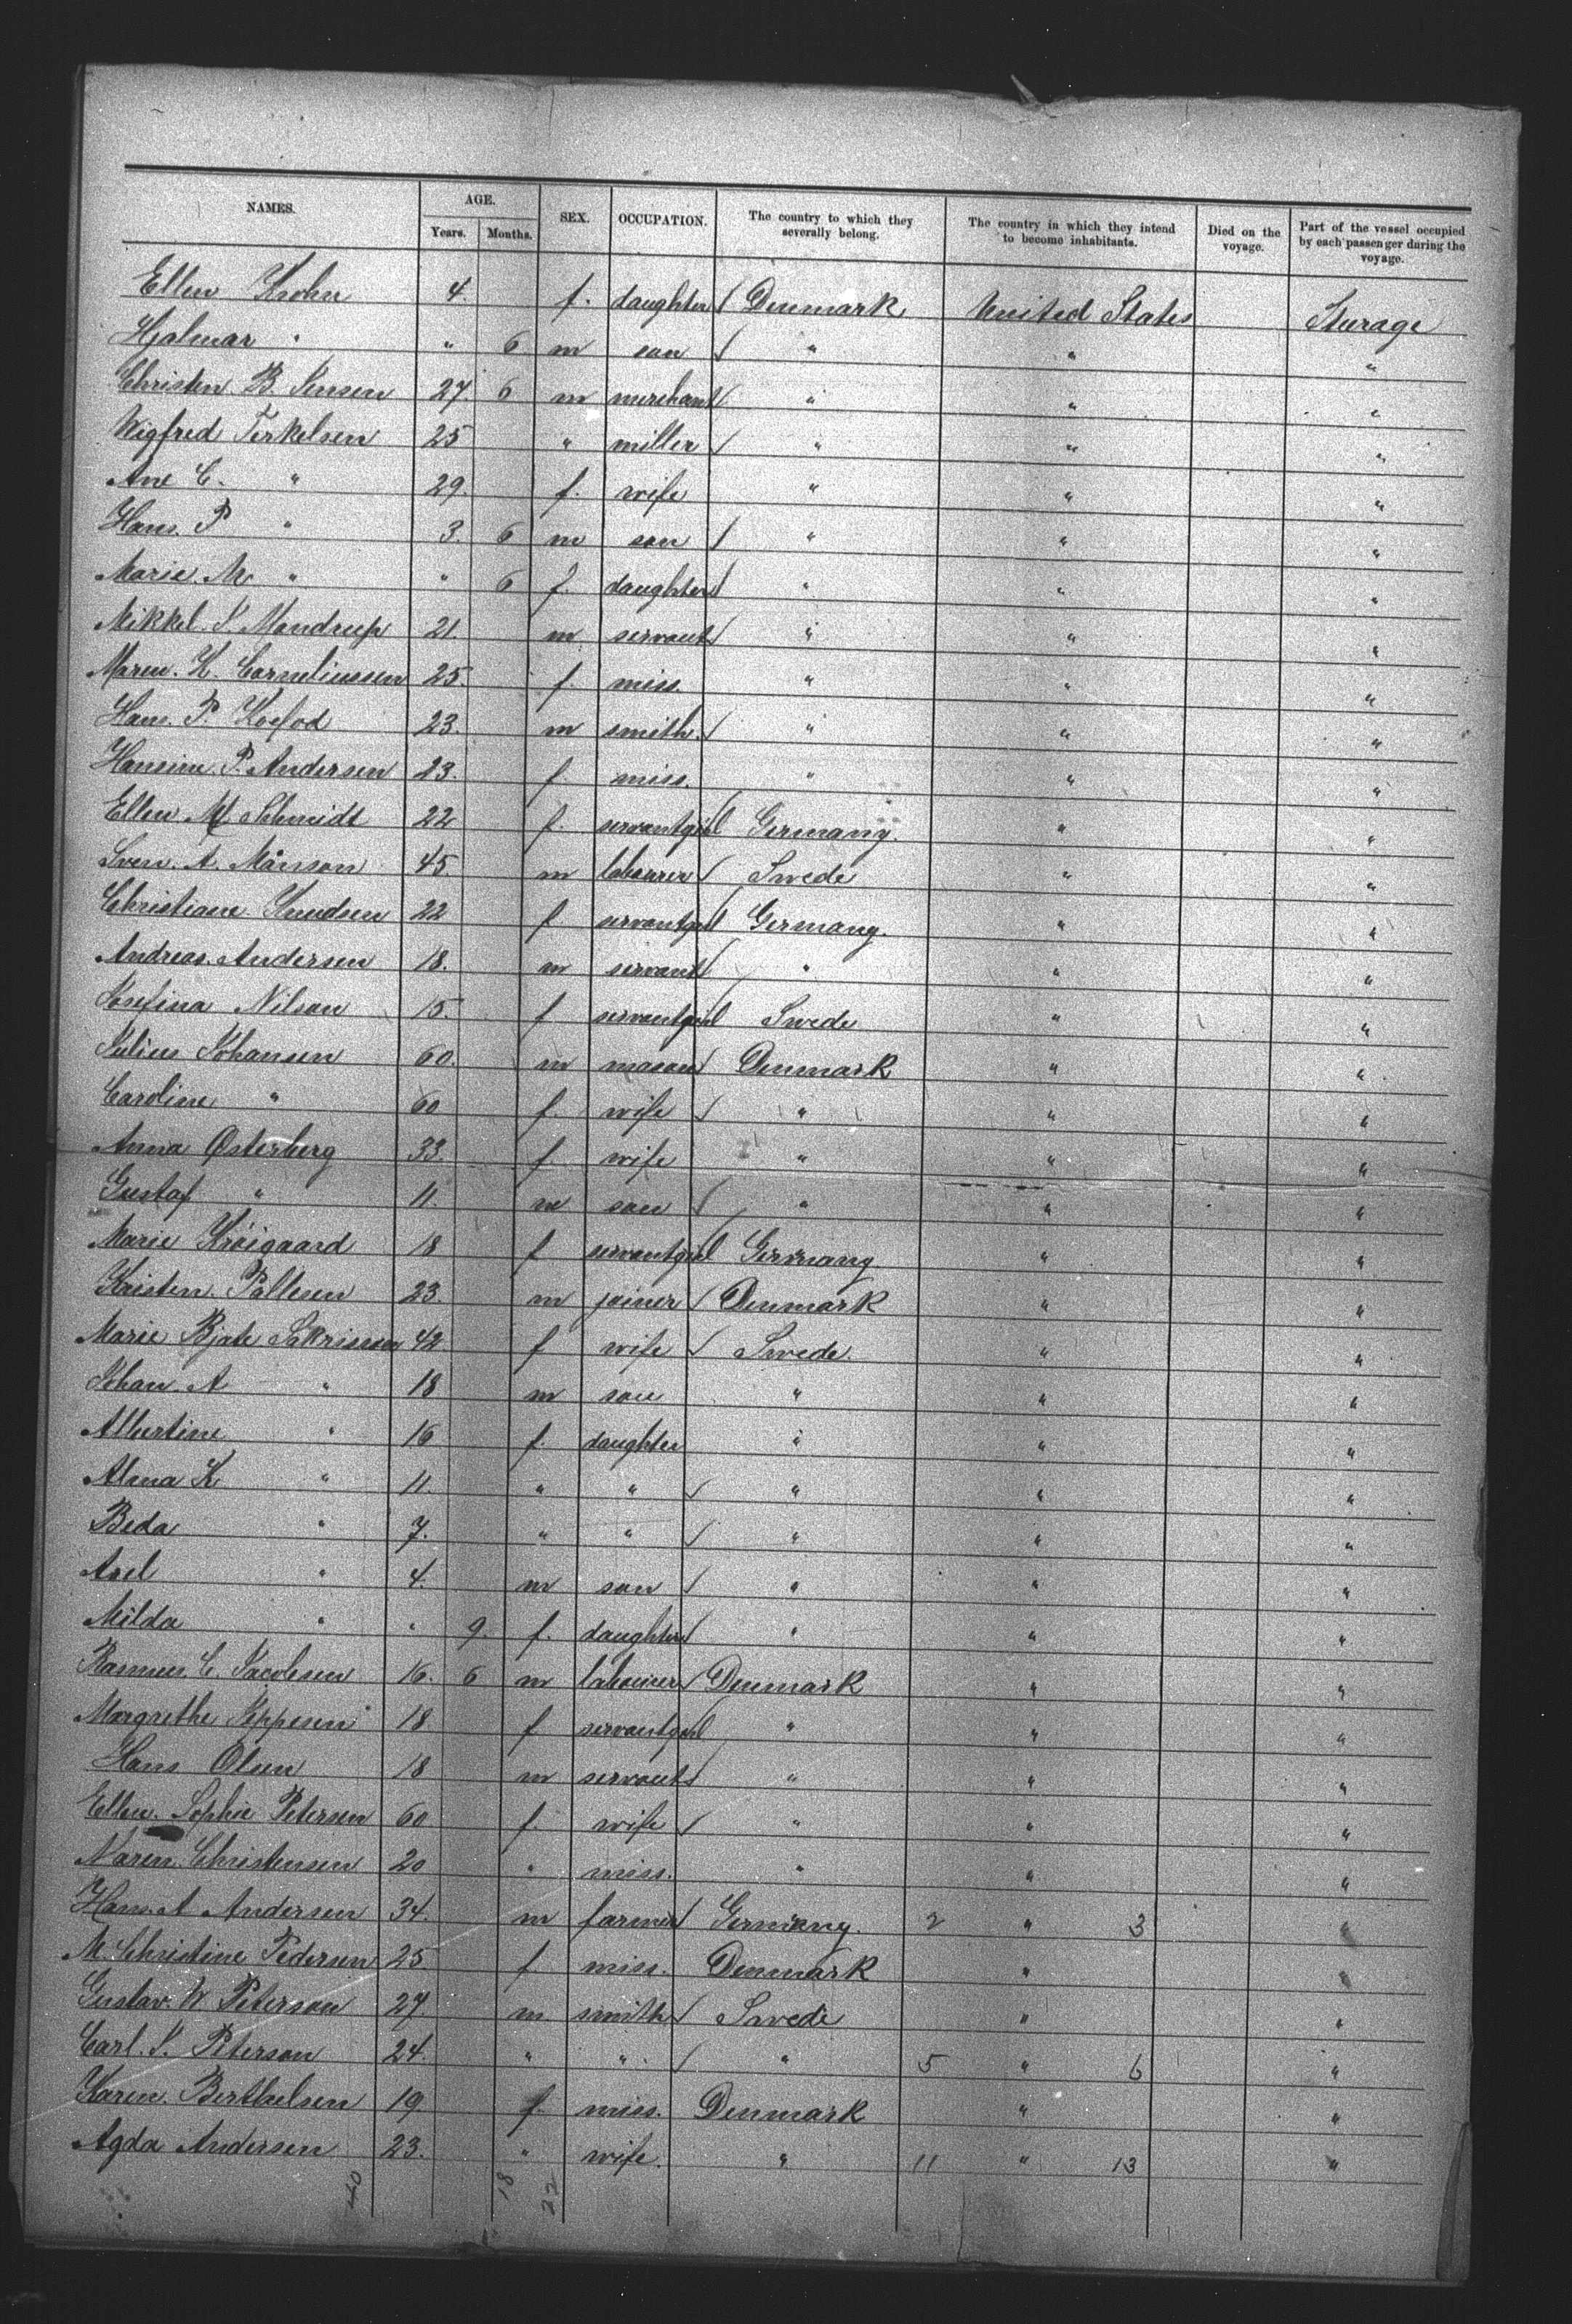 NAMES. AGE. Years. Months. SEX. OCCUPATION. The country to which they severally belong. The country in which they intend to become inhabitants. Died on the voyage. Part of the vessel occupied by each passenger during the voyage.
Ellen Krohn 4. f. daughter Denmark United States Sturage
Hjalmar " " 6 m son " " "
Christen B. Jensen 27. 6 m merchant " " "
Wigfred Terkelsen 25 " miller " " "
Ane C. " 29. f. wife " " "
Hans. P " 3. 6 m son " " "
Marie. M. " " 6 f. daughter " " "
Mikkel. S. Mandrup 21. m servant " " "
Maren. K. Corneliussen 25. f. miss. " " "
Hans. P. Kofod 23. m smith. " " "
Hansine. P. Andersen 23. f. miss. " " "
Ellen M Schmidt 22 f. servantgirl Germany. " "
Sven. A. Månson 45. m labourer Swede " "
Christiane Knudsen 22 f servantgirl Germany. " "
Andreas. Andersen 18. m servant " " "
Josefina Nilson 15. f servantgirl Swede " "
Julius Johansen 60. m mason Denmark " "
Caroline " 60 f. wife " " "
Anna Østerberg 33. f. wife " " "
Gustaf " 11. m son " " "
Marie Kröigaard 18 f servantgirl Germany " "
Kristen. Pallesen 23. m joiner Denmark " "
Marie Bjate Sakrisson 42 f wife Swede. " "
Johan. A " 18 m son " " "
Albertine " 16 f. daughter " " "
Alma K " 11. " " " " "
Beda " 7. " " " " "
Axel " 4. m son " " "
Milda " " 9. f. daughter " " "
Rasmus C. Jacobsen 16. 6 m labourer Denmark " "
Margrethe Jeppesen 18 f servantgirl " " "
Hans Olsen 18 m servant " " "
Ellen. Sophie Petersen 60 f. wife " " "
Maren. Christensen 20 " miss. " " "
Hans. A Andersen 34. m farmer Germany. 2 " 3 "
M. Christine Pedersen 25. f miss. Denmark " "
Gustav. W Peterson 27. m smith Swede " "
Carl. S. Peterson 24. " " " 5 " 6 "
Karen. Berthelsen 19 f. miss. Denmark " "
Agda Andersen 23. " wife. " 11 " 13 "
40 18 22